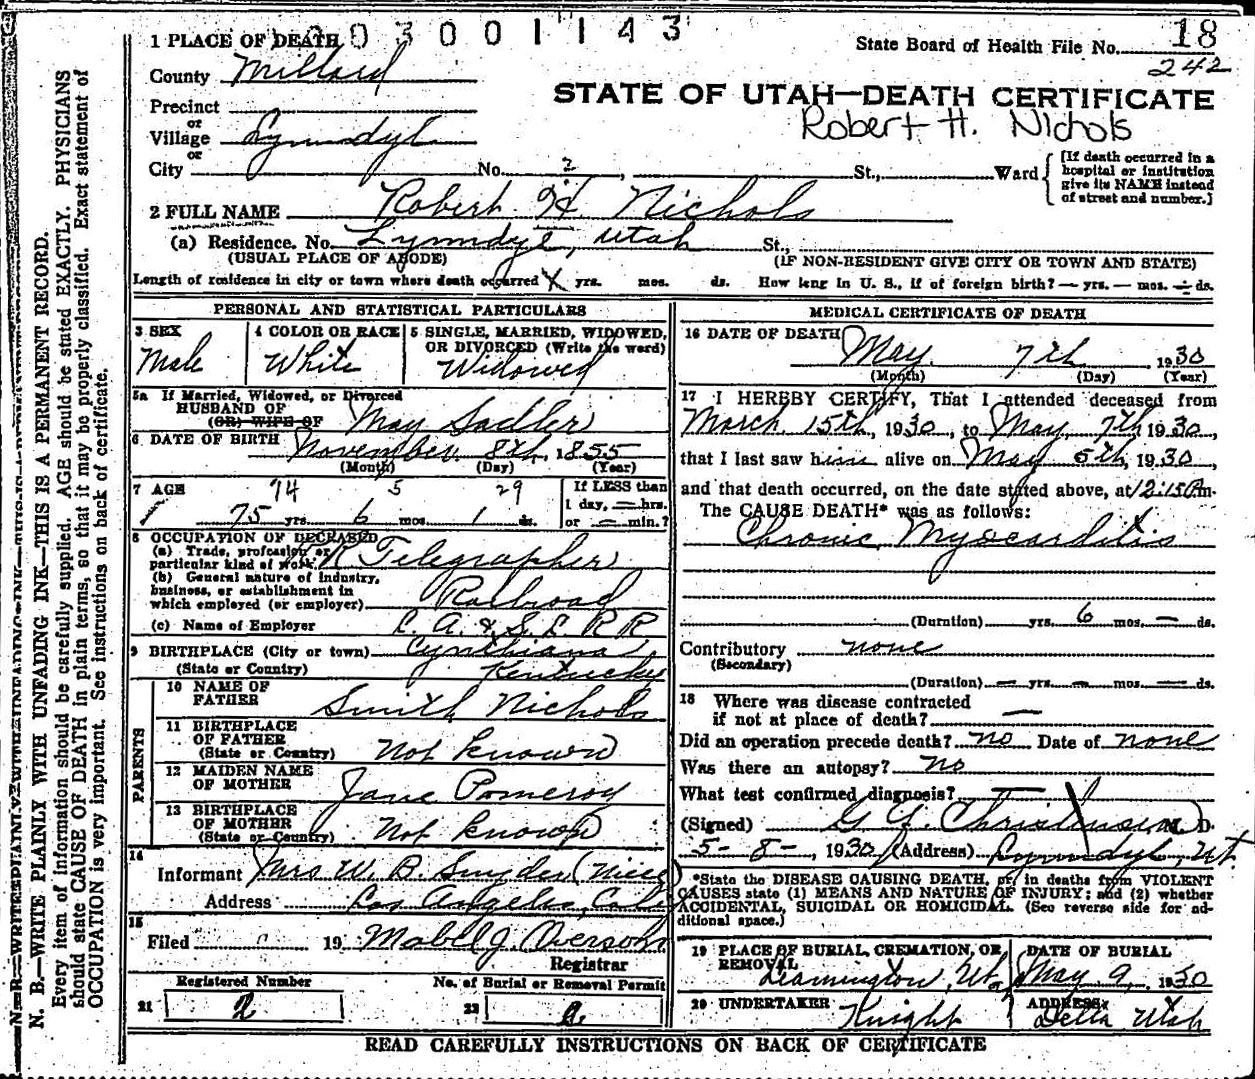 003001143
18
State Board of Health File No.
242
1 PLACE OF DEATH
County Millard
STATE OF UTAH—DEATH CERTIFICATE
Robert H. Nichols
Precinct
or
Village Lynndyl
or
City No. 2, St., Ward
[If death occurred in a hospital or institution give its NAME instead of street and number.]
2 FULL NAME Robert H. Nichols
(a) Residence. No. Lynndyl, Utah St.,
(USUAL PLACE OF ABODE) (IF NON-RESIDENT GIVE CITY OR TOWN AND STATE)
Length of residence in city or town where death occurred X yrs. mos. ds. How long in U. S., if of foreign birth? — yrs. — mos. — ds.
PERSONAL AND STATISTICAL PARTICULARS
3 SEX Male
4 COLOR OR RACE White
5 SINGLE, MARRIED, WIDOWED, OR DIVORCED (Write the word) Widowed
5a If Married, Widowed, or Divorced
HUSBAND OF
(OR) WIFE OF May Sadler
6 DATE OF BIRTH November 8th, 1855
(Month) (Day) (Year)
7 AGE 74 5 29
75 yrs. 6 mos. 1 ds.
If LESS than
1 day, — hrs.
or — min.?
8 OCCUPATION OF DECEASED
(a) Trade, profession or
particular kind of work R Telegrapher
(b) General nature of industry,
business, or establishment in
which employed (or employer) Railroad
(c) Name of Employer L. A. & S. L. R R
9 BIRTHPLACE (City or town) Cynthiana
(State or Country) Kentucky
PARENTS
10 NAME OF
FATHER Smith Nichols
11 BIRTHPLACE
OF FATHER
(State or Country) Not known
12 MAIDEN NAME
OF MOTHER Jane Pomeroy
13 BIRTHPLACE
OF MOTHER
(State or Country) Not known
14
Informant Mrs W. B. Snyder (Niece)
Address Los Angeles, Cal
15
Filed 19 Mabel J. Iverson
Registrar
Registered Number
21 2
No. of Burial or Removal Permit
22 2
MEDICAL CERTIFICATE OF DEATH
16 DATE OF DEATH May 7th 1930
(Month) (Day) (Year)
17 I HEREBY CERTIFY, That I attended deceased from
March 15th, 1930, to May 7th 1930,
that I last saw him alive on May 5th, 1930,
and that death occurred, on the date stated above, at 12:15 Pm.
The CAUSE DEATH* was as follows:
Chronic Myocarditis
(Duration) yrs. 6 mos. — ds.
Contributory none
(Secondary)
(Duration) — yrs. — mos. — ds.
18 Where was disease contracted
if not at place of death? —
Did an operation precede death? no Date of none
Was there an autopsy? no
What test confirmed diagnosis? —
(Signed) G. Y. Christenson M. D.
5-8-, 1930 (Address) Lynndyl, Ut
*State the DISEASE CAUSING DEATH, or, in deaths from VIOLENT
CAUSES state (1) MEANS AND NATURE OF INJURY; and (2) whether
ACCIDENTAL, SUICIDAL OR HOMICIDAL. (See reverse side for ad-
ditional space.)
19 PLACE OF BURIAL, CREMATION, OR
REMOVAL Leamington, Utah
DATE OF BURIAL
May 9, 1930
20 UNDERTAKER Knight
ADDRESS
Delta Utah
READ CAREFULLY INSTRUCTIONS ON BACK OF CERTIFICATE
N. B.—WRITE PLAINLY WITH UNFADING INK—THIS IS A PERMANENT RECORD.
Every item of information should be carefully supplied. AGE should be stated EXACTLY. PHYSICIANS
should state CAUSE OF DEATH in plain terms, so that it may be properly classified. Exact statement of
OCCUPATION is very important. See instructions on back of certificate.